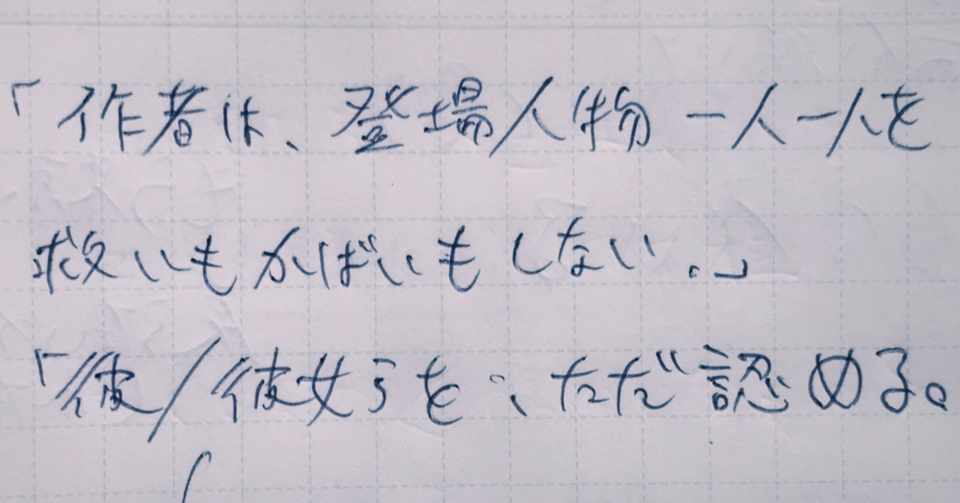 「作者は、登場人物一人一人を
救いもかばいもしない。」
「彼/彼女らを、ただ認める。